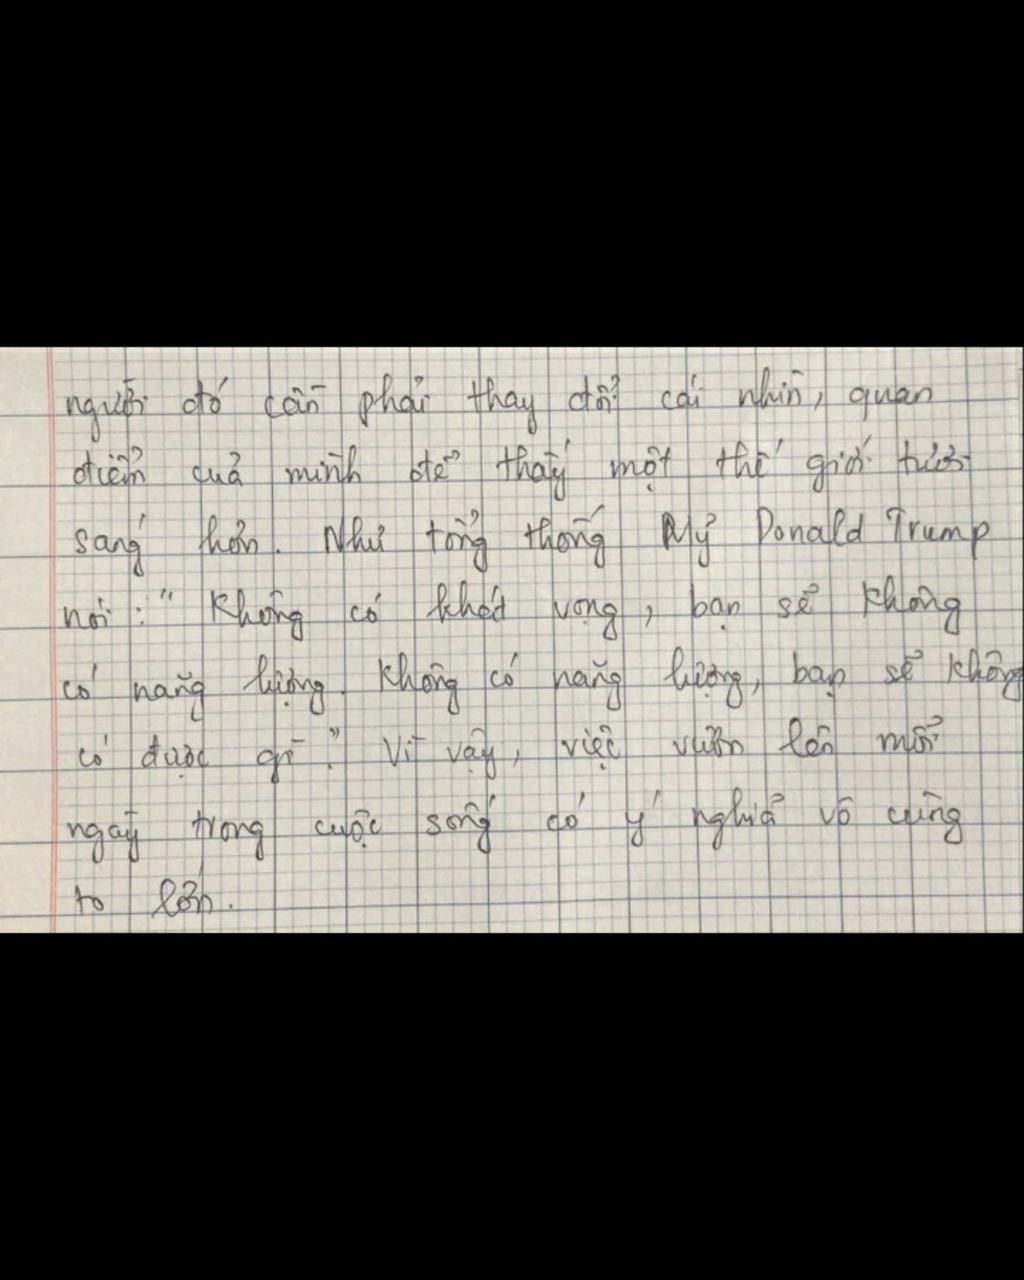 người đó cần phải thay đổi cái nhìn, quan
điểm cuả mình để thấy một thế giới tươi
sáng hơn. Như tổng thống Mỹ Donald Trump
nói : " Không có khát vọng, bạn sẽ không
có năng lượng. Không có năng lượng, bạn sẽ không
có được gì ". Vì vậy, việc vươn lên mỗi
ngày trong cuộc sống có ý nghĩa vô cùng
to lớn.